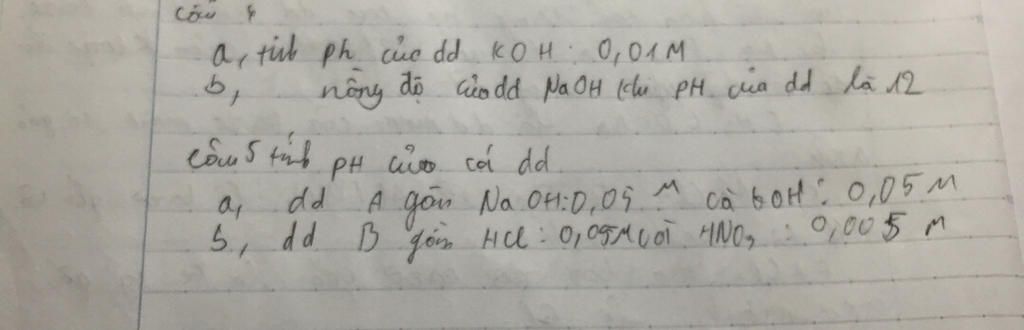 Câu 4
a, tính ph của dd KOH : 0,01M
b, nồng độ của dd NaOH khi PH của dd là 12
Câu 5 tính PH của cá dd
a, dd A gồn NaOH:0,05 M cà OH: 0,05M
b, dd B gồm HCl: 0,05M với HNO3 : 0,005 M